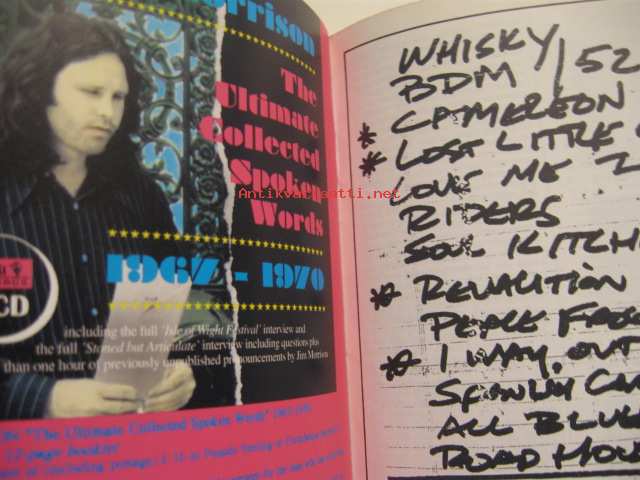 orrison
The
Ultimate
Collected
Spoken
Words
1967 - 1970
CD
including the full 'Isle of Wight Festival' interview and
the full 'Stoned but Articulate' interview including questions plus
than one hour of previously unpublished pronouncements by Jim Morrison
"The Ultimate Collected Spoken Words" 1967-1970
12-page booklet
Antikvaari.net
WHISKY
BDM / 52
CAMEREON
* LOST LITTLE
* LOVE ME
RIDERS
SOUL KITCH
*
PEACE FROG
* I WAY, OUT
ALL BLUE
ROAD HOU